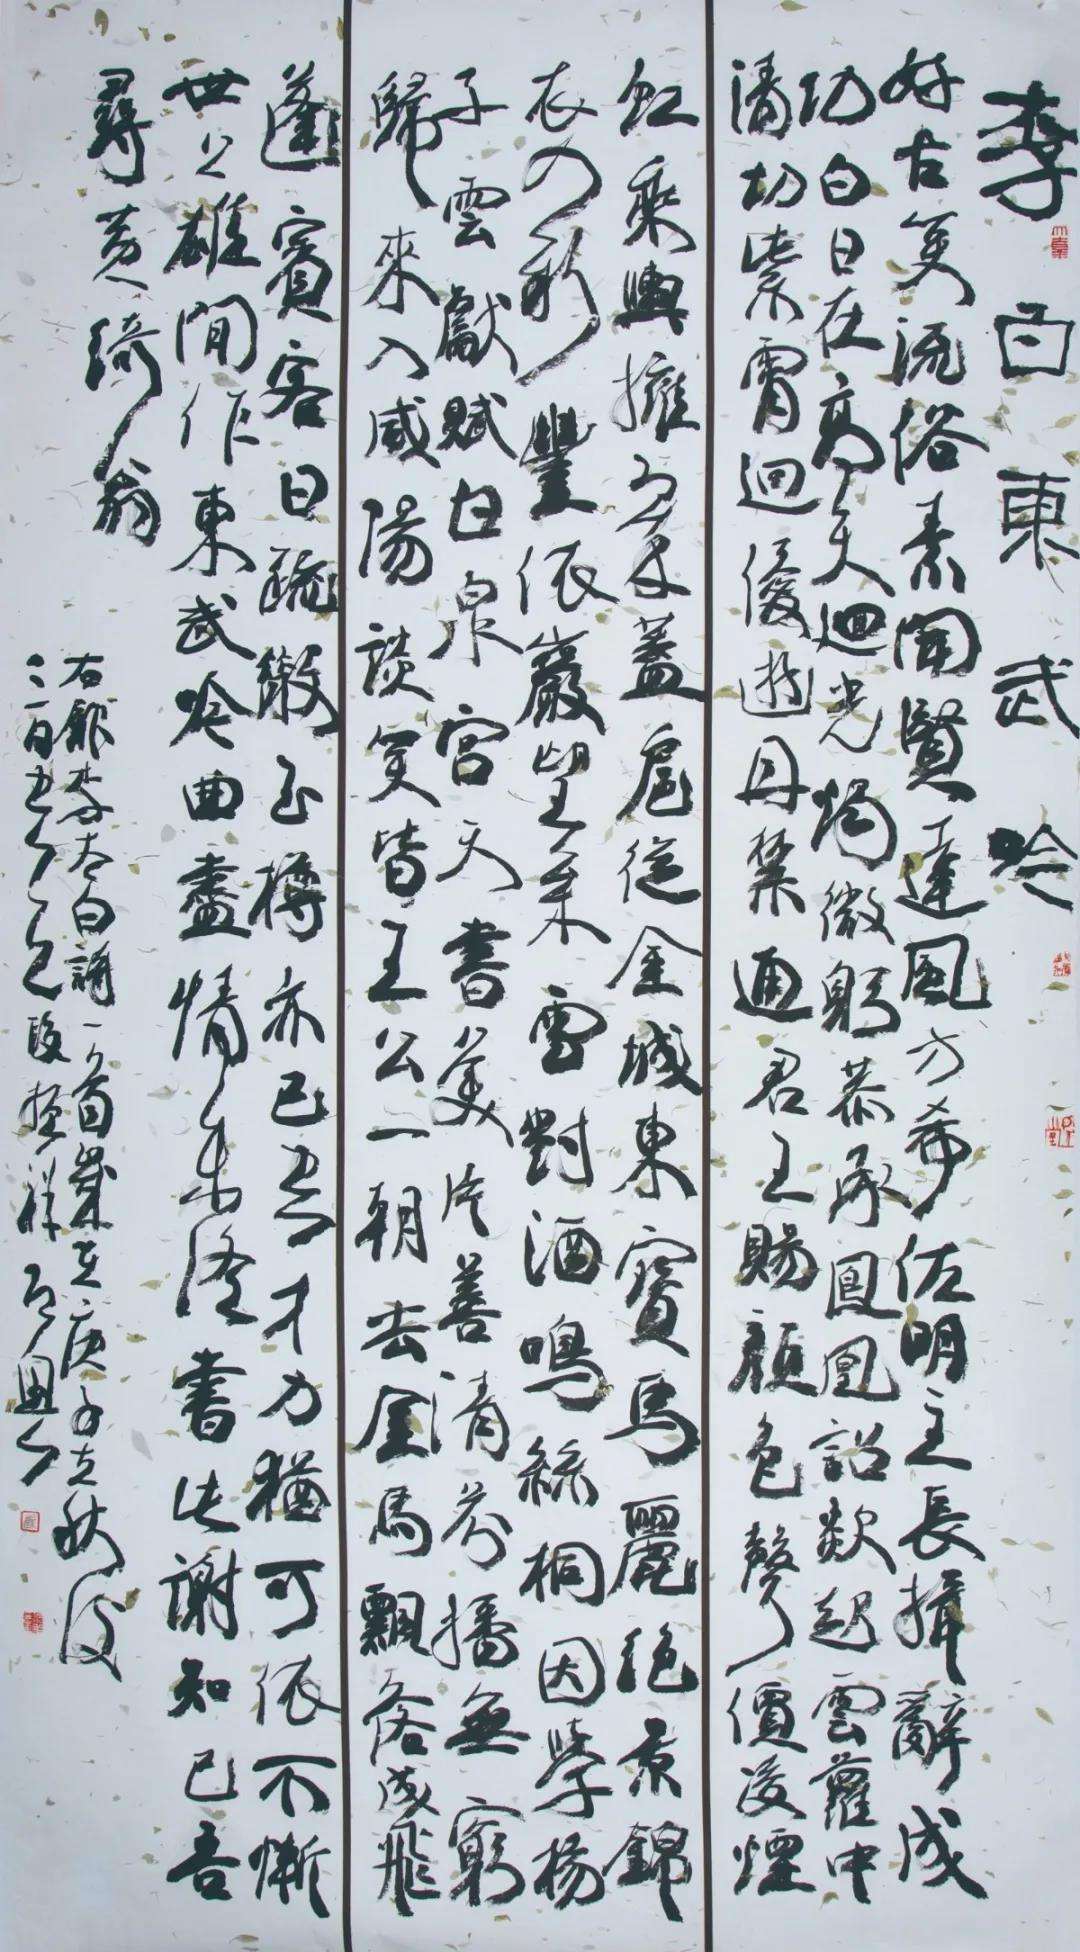 李白東武吟
好古笑流俗素聞賢達風方希佐明主長揖辭成
功白日在高天迴光燭微躬恭承鳳凰詔欻起雲蘿中
清切紫霄迥優遊丹禁通君王賜顏色聲價凌煙
虹乘輿擁翠蓋扈從金城東寶馬麗絕景錦
衣入新豐依巖望松雪對酒鳴絲桐因學楊
子雲獻賦甘泉宮天書美片善清芬播無窮
歸來入咸陽談笑皆王公一朝去金馬飄落成飛
蓬賓客日疏散玉樽亦已空才力猶可依不慚
世上雄閒作東武吟曲盡情未終書此謝知己吾
尋黃綺翁
右錄李太白詩一首歲在庚子立秋後
二日